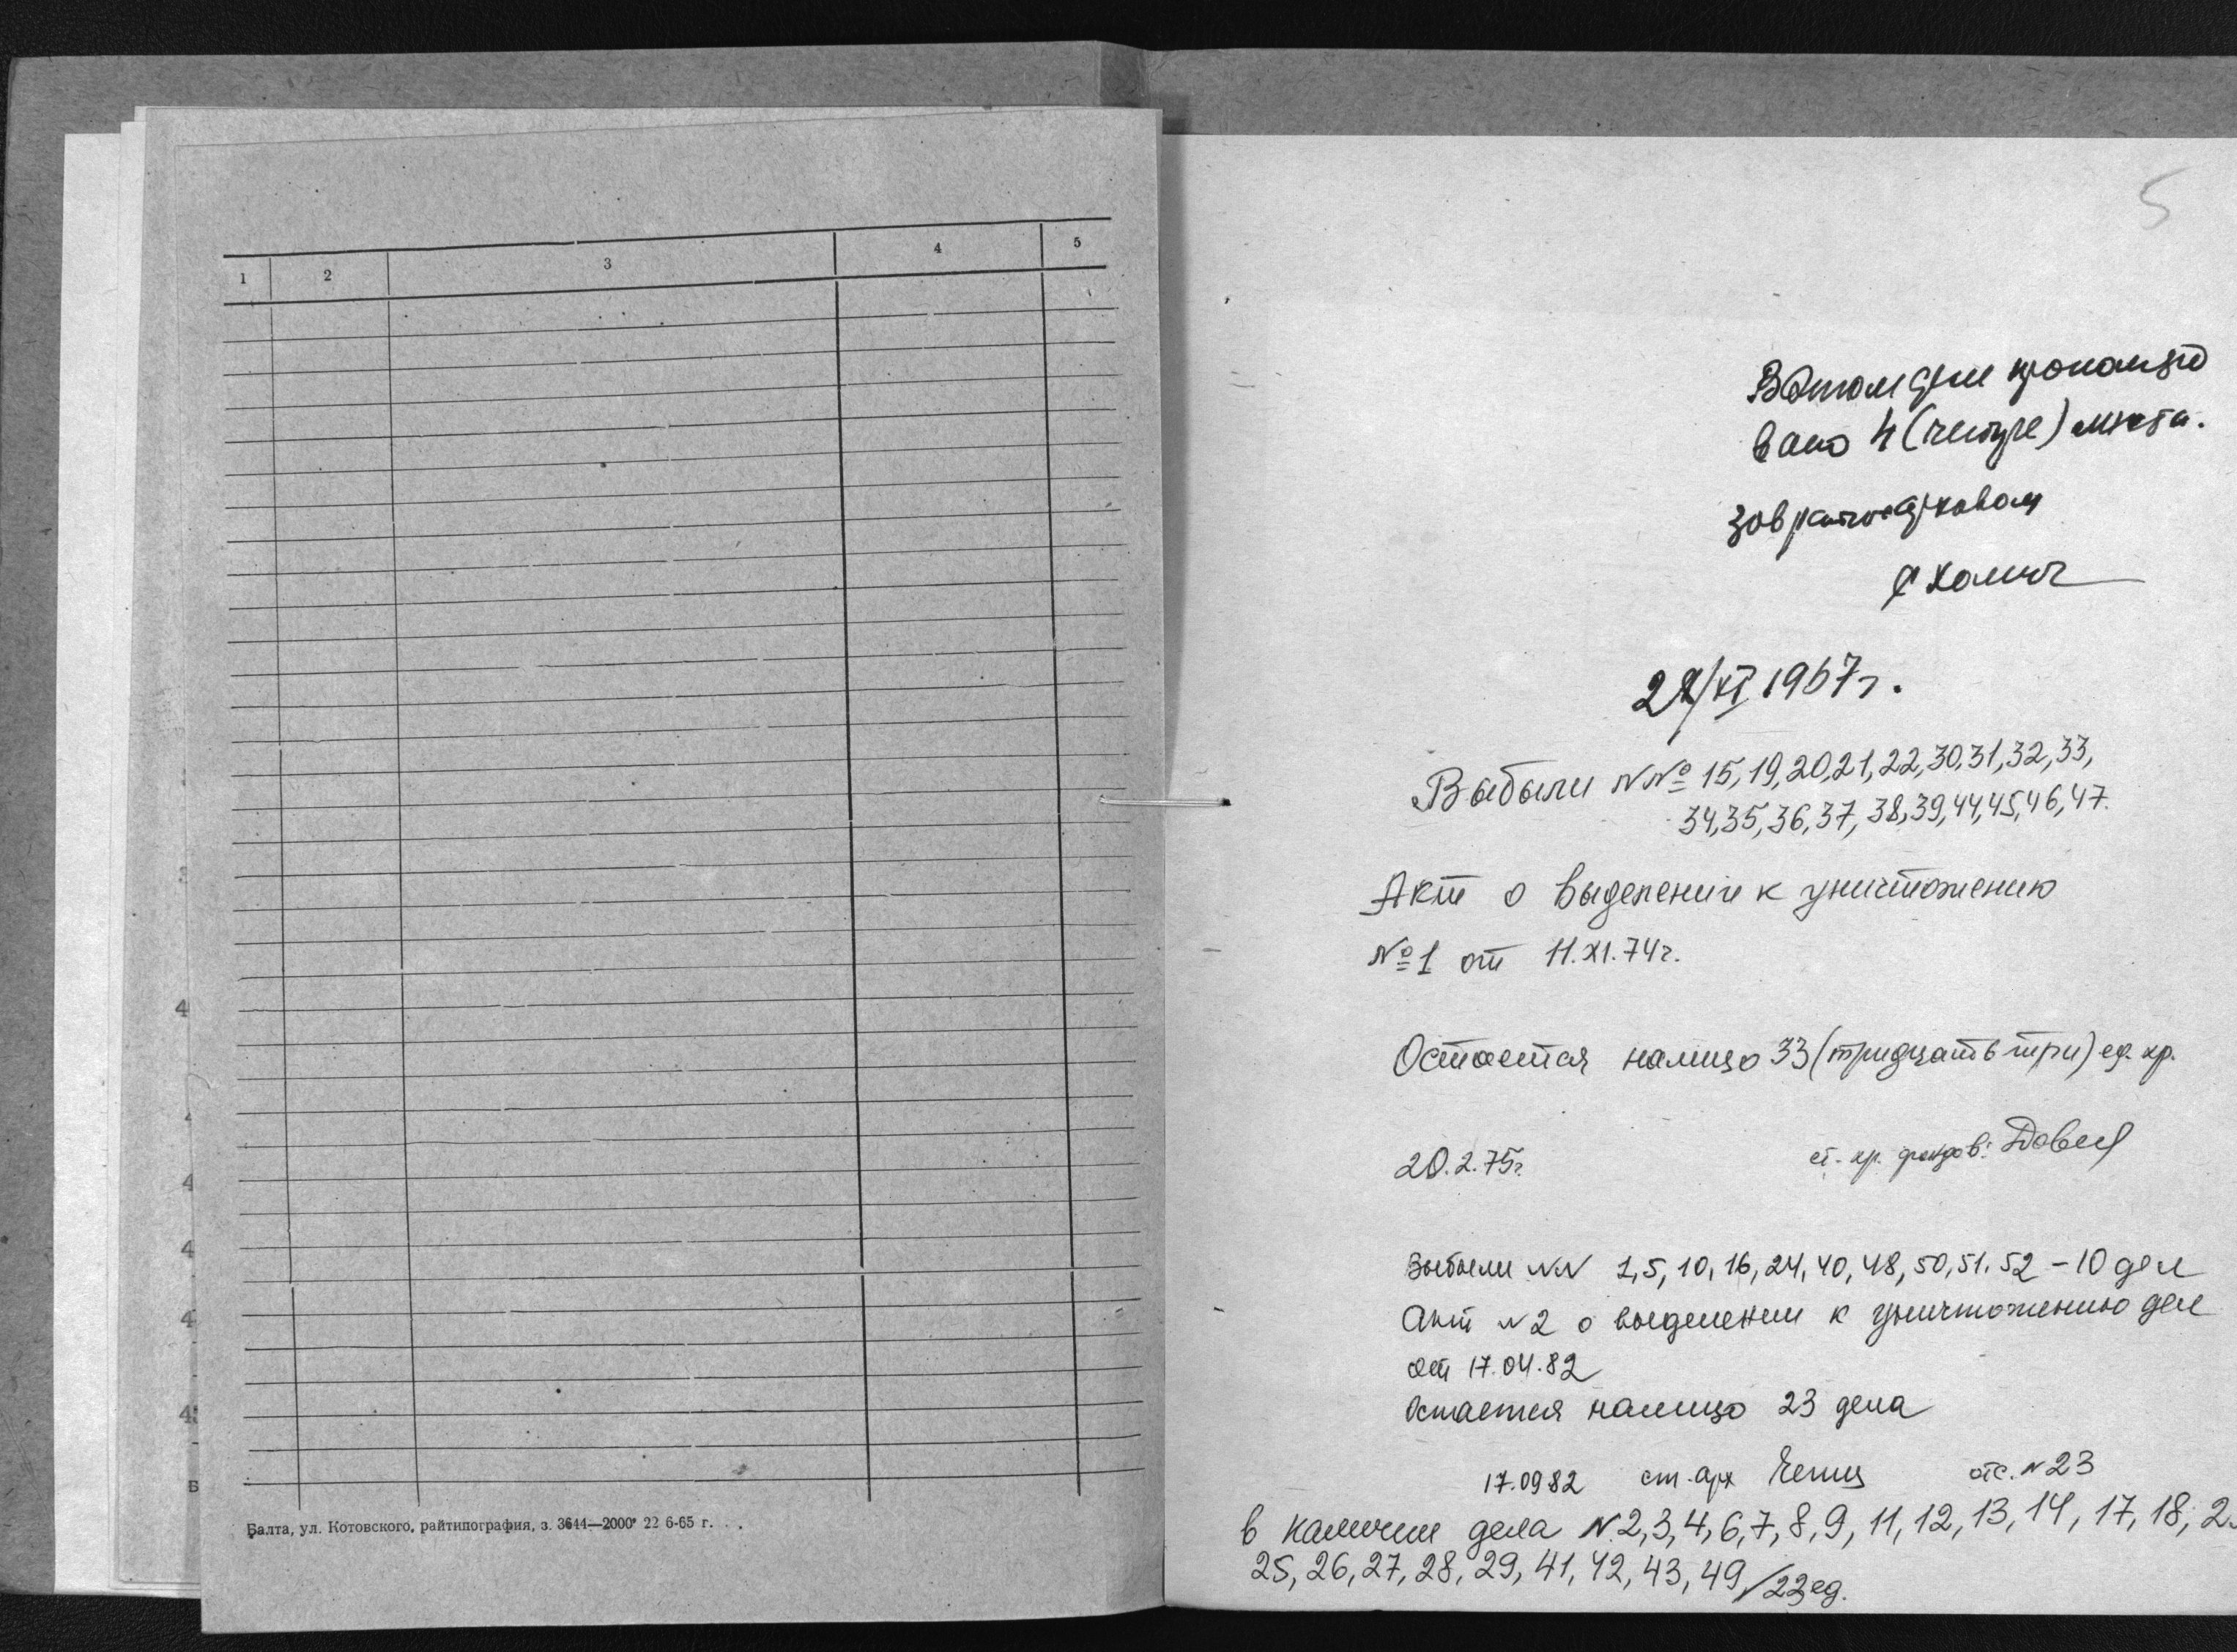 1 2 3 4 5
4
4
4
4
Балта, ул. Котовского, райтипография, з. 3644—2000 22 6-65 г.
5
В этом деле пронумеро
вано 4 (четыре) листа.
Зав райгосархивом
28/XI 1967 г.
Выбыли №№ 15, 19, 20, 21, 22, 30, 31, 32, 33,
34, 35, 36, 37, 38, 39, 44, 45, 46, 47.
Акт о выделении к уничтожению
№ 1 от 11.XI.74 г.
Остается налицо 33 (тридцать три) ед. хр.
20.2.75 г. ст. хр. фондов:
Выбыли NN 1, 5, 10, 16, 24, 40, 48, 50, 51. 52 – 10 дел
Акт N 2 о выделении к уничтожению дел
от 17.04.82
Остается налицо 23 дела
17.0982 ст. арх отс. N 23
в наличии дела N 2, 3, 4, 6, 7, 8, 9, 11, 12, 13, 14, 17, 18, 2
25, 26, 27, 28, 29, 41, 42, 43, 49 / 23 ед.